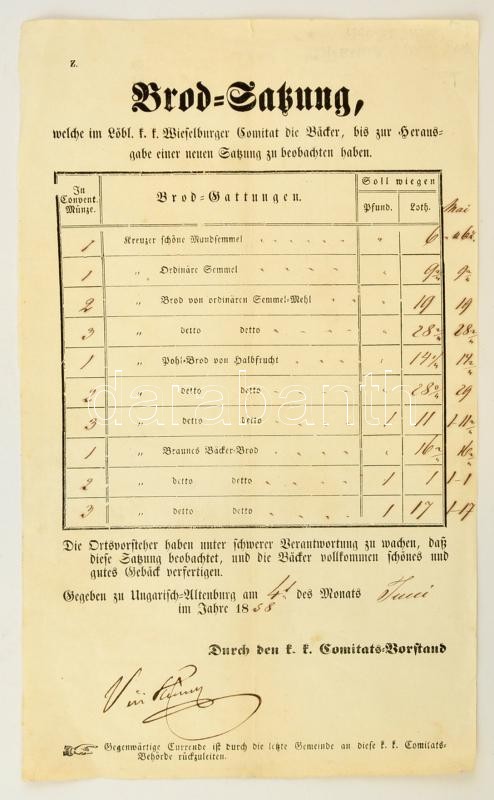 Z.
Brod=Satzung,
welche im Löbl. k. k. Wieselburger Comitat die Bäcker, bis zur Heraus=
gabe einer neuen Satzung zu beobachten haben.
In Convent. Münze. Brod=Gattungen. Soll wiegen
Pfund. Loth. Mai
1 Kreuzer schöne Mundsemmel . . . . . „ 6
1 „ Ordinäre Semmel . . . . . „
2 „ Brod von ordinären Semmel=Mehl . . „ 19 19
3 „ detto detto . . . . „
1 „ Pohl=Brod von Halbfrucht . . . . „
2 „ detto detto . . . . „ 29
3 „ detto detto . . . . 1 11
1 „ Braunes Bäcker=Brod . . . . „
2 „ detto detto . . . . 1 1 1-1
3 „ detto detto . . . . 1 17 1-17
darabanth
Die Ortsvorsteher haben unter schwerer Verantwortung zu wachen, daß
diese Satzung beobachtet, und die Bäcker vollkommen schönes und
gutes Gebäck verfertigen.
Gegeben zu Ungarisch=Altenburg am 4t des Monats Juni
im Jahre 1858
Durch den k. k. Comitats=Vorstand
Gegenwärtige Currende ist durch die letzte Gemeinde an diese k. k. Comitats=
Behörde rückzuleiten.